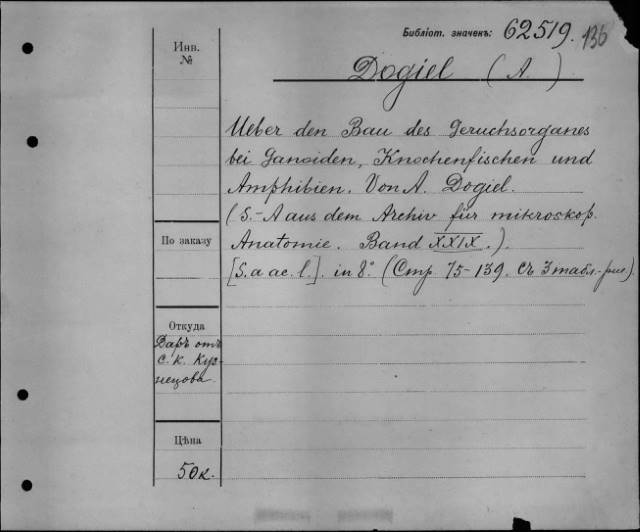 Библіот. значекъ: 62519. 136
Инв.
№
Dogiel (A)
Ueber den Bau des Geruchsorganes
bei Ganoiden, Knochenfischen und
Amphibien. Von A. Dogiel.
(S.-A aus dem Archiv für mikroskop.
По заказу
Anatomie. Band XXIX.).
[S. a ac. l.]. in 8°. (Стр. 75-139. съ 3 табл.-рис.)
Откуда
Даръ отъ
С. К. Куз-
нецова.
Цѣна
50к.